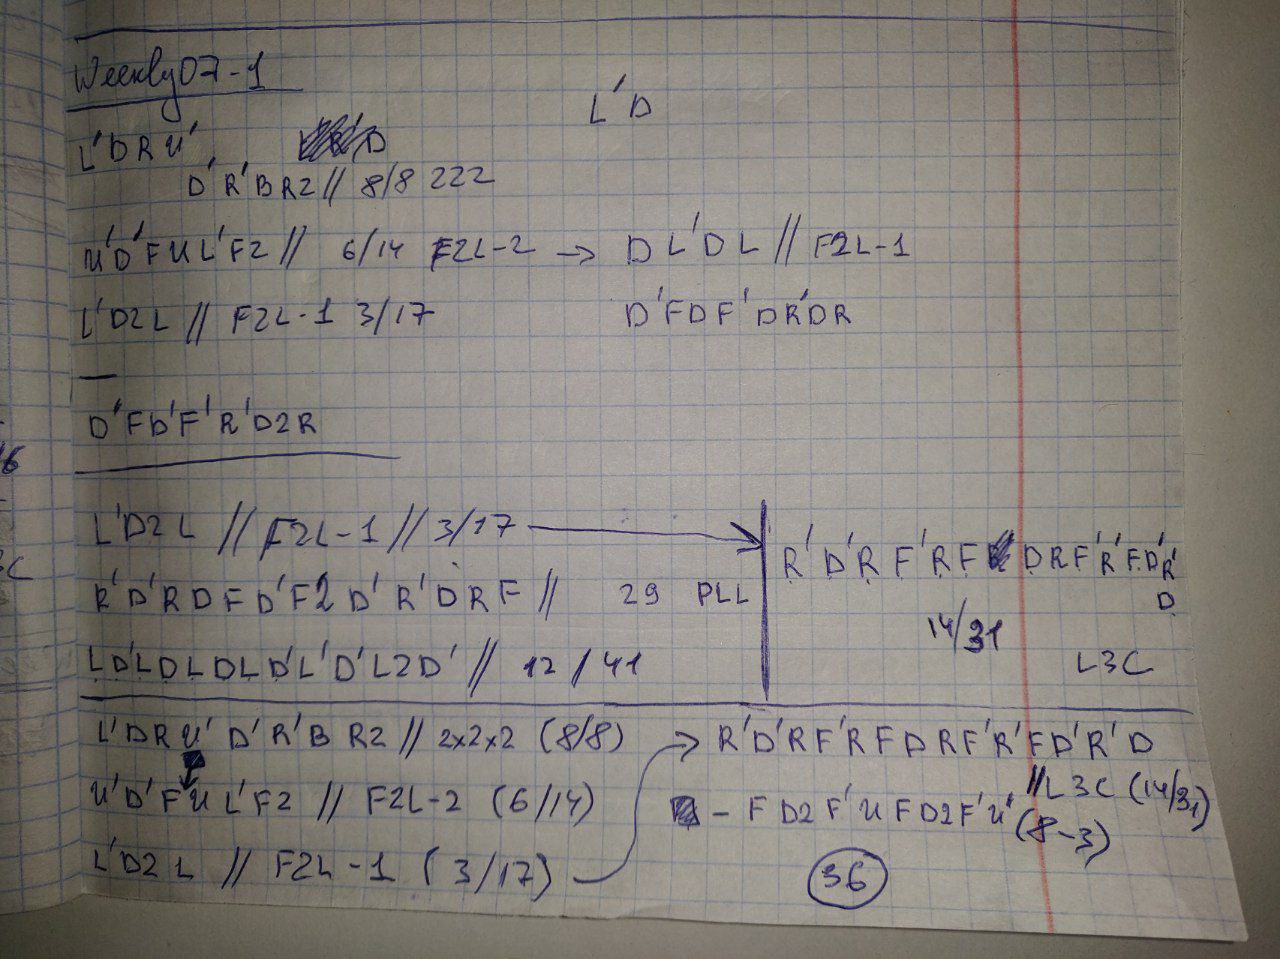 Weekly07-1
L'D
L'DRU'
D'R'BR2// 8/8 222
U'D'FUL'F2// 6/14 F2L-2 → DL'DL // F2L-1
L'D2L // F2L-1 3/17 D'FDF'DR'DR
D'FD'F'R'D2R
L'D2L // F2L-1 // 3/17
R'D'RF'RF DRF'R'FD'R'
D
R'D'RDFD'F2D'R'DRF // 29 PLL
14/31
LD'LDLDLD'L'D'L2D' // 12/41
L3C
L'DRU'D'R'BR2 // 2x2x2 (8/8)
R'D'RF'RFDRF'R'FD'R'D
// L3C (14/31)
U'D'FUL'F2 // F2L-2 (6/14)
- FD2F'UFD2F'U' (8-3)
L'D2L // F2L-1 (3/17)
36